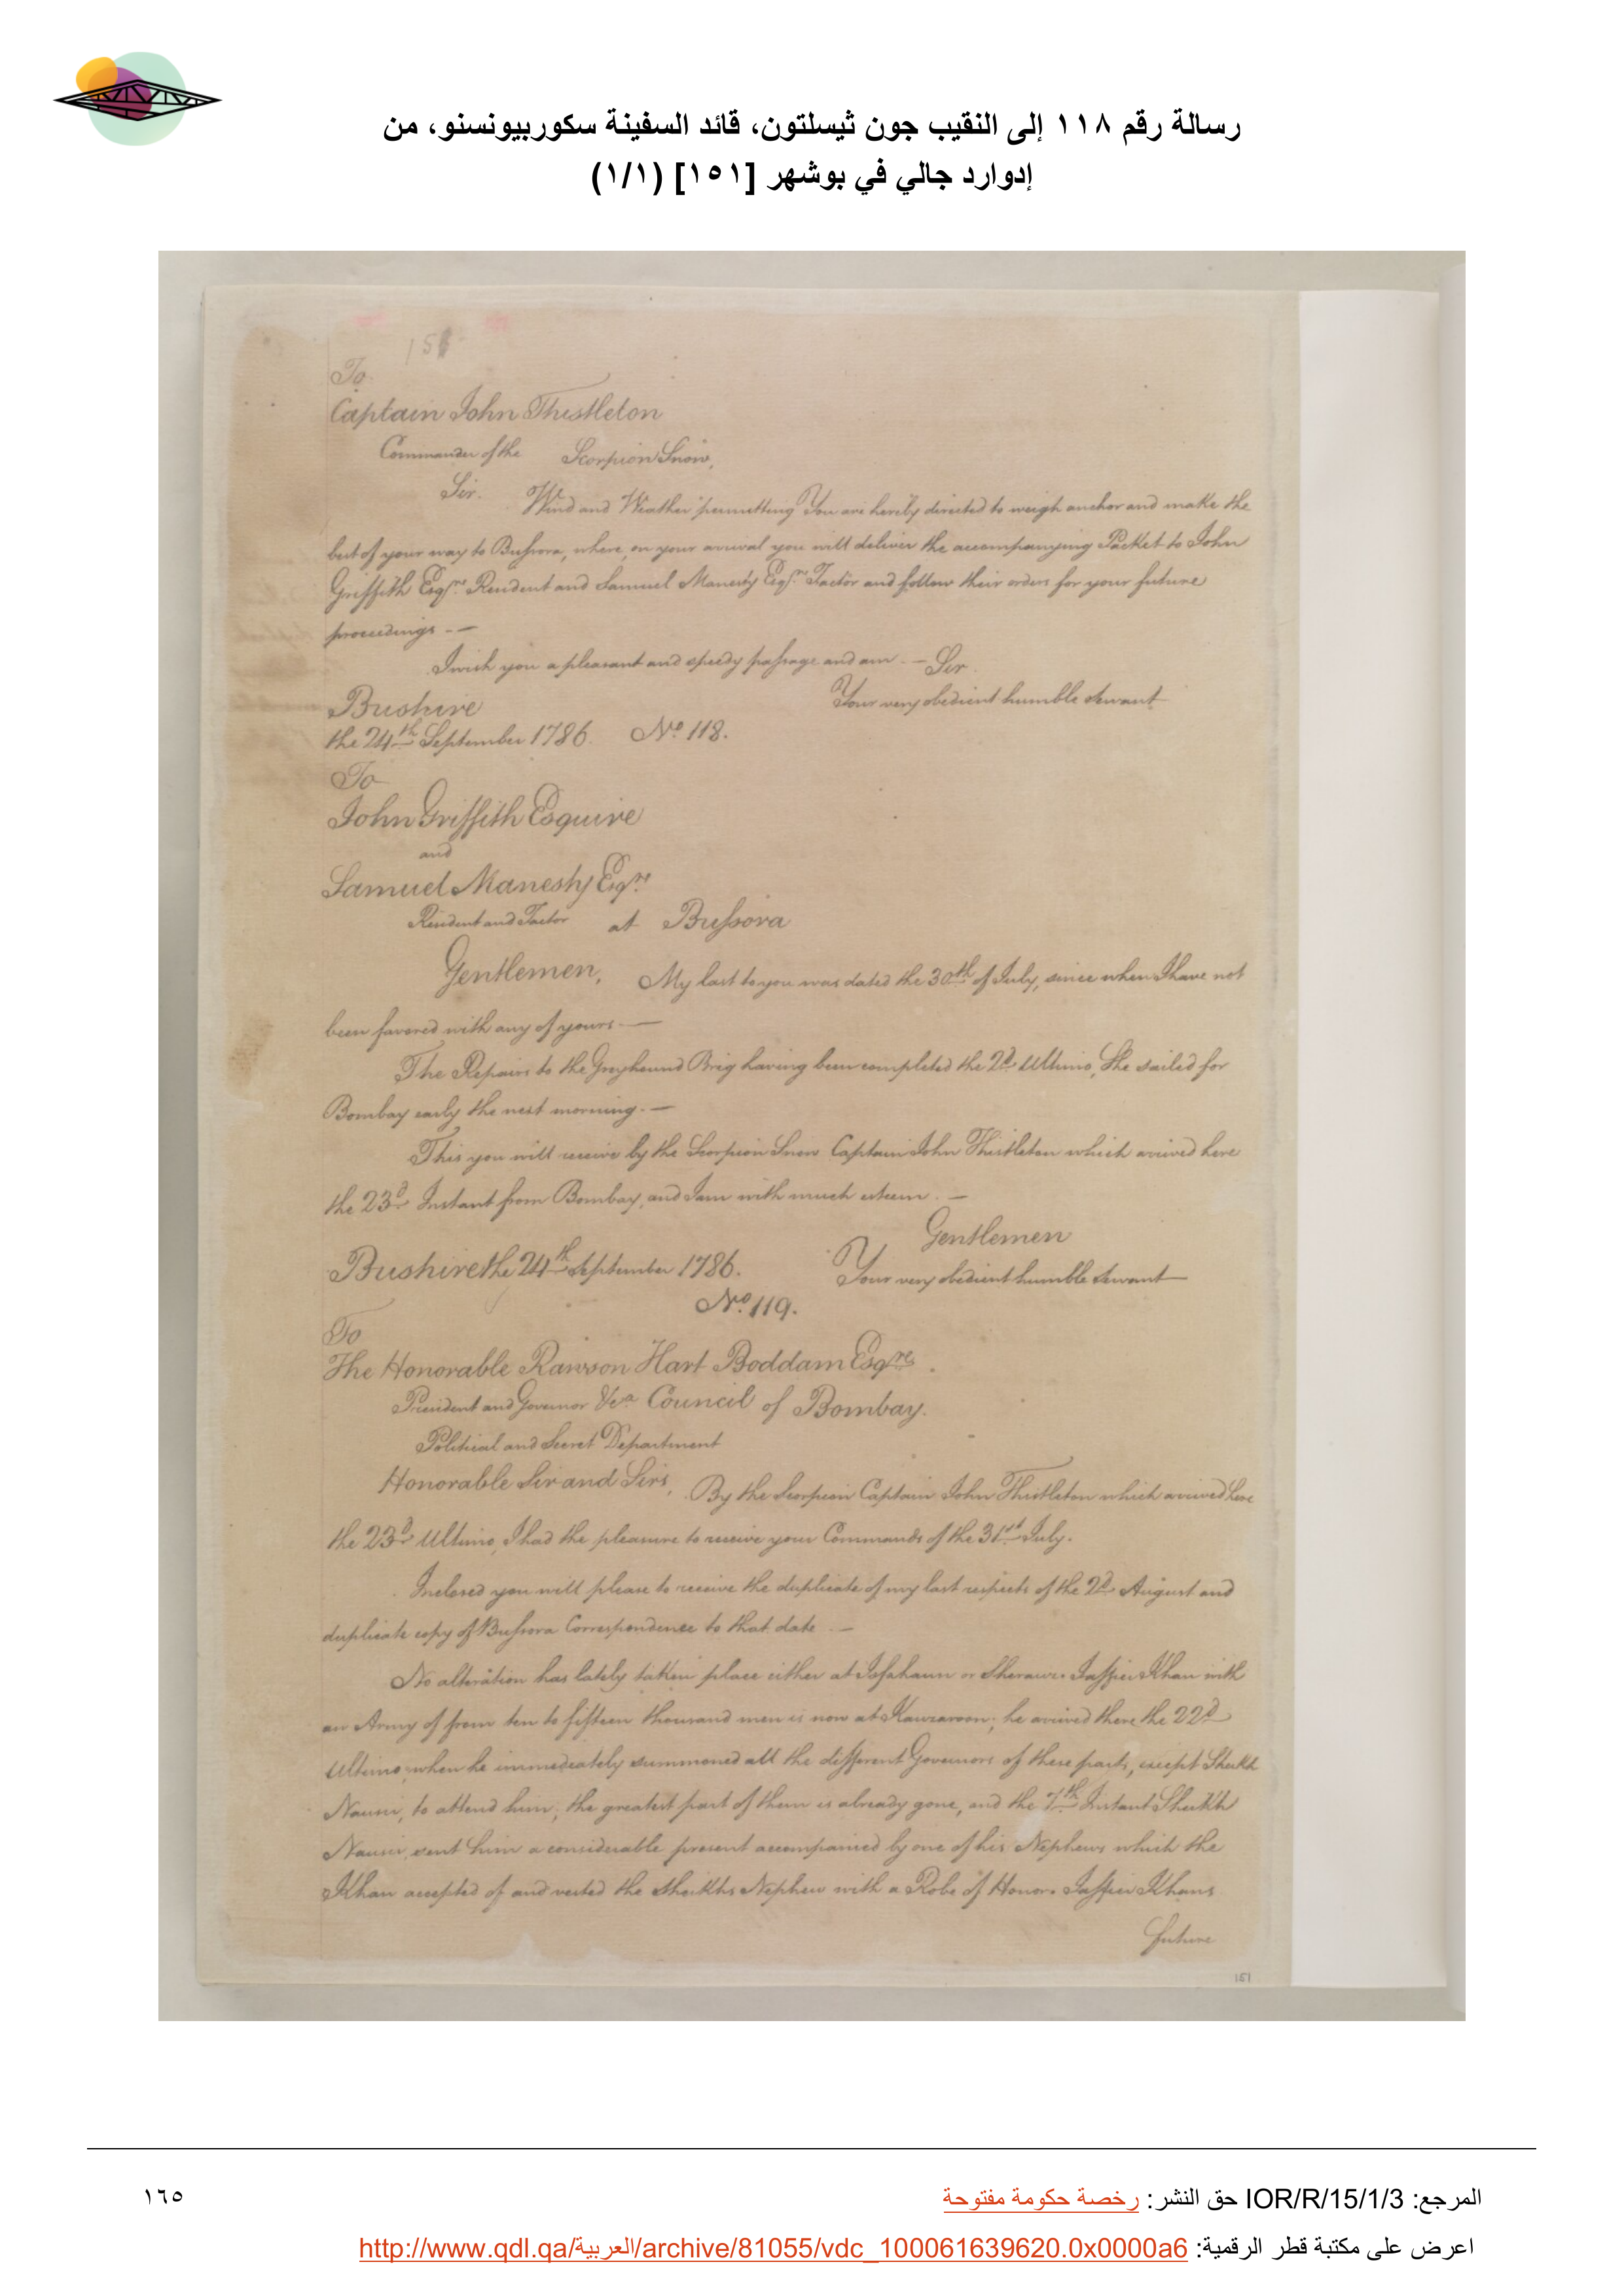 رسالة رقم ١١٨ إلى النقيب جون ثيسلتون، قائد السفينة سكوربيونسنو، من
إدوارد جالي في بوشهر [١٥١] (١/١)
151
To
Captain John Thistleton
Commander of the Scorpion Snow,
Sir. Wind and Weather permitting You are hereby directed to weigh anchor and make the
best of your way to Bussora, where, on your arrival you will deliver the accompanying Packet to John
Griffith Esqre. Resident and Samuel Manesty Esqre. Factor and follow their orders for your future
proceedings. —
I wish you a pleasant and speedy passage and am. — Sir.
Bushire Your very obedient humble Servant
the 24th September 1786. No. 118.
To
John Griffith Esquire
and
Samuel Manesty Esqre
Resident and Factor at Bussora
Gentlemen, My last to you was dated the 30th of July, since when I have not
been favored with any of yours. —
The Repairs to the Greyhound Brig having been completed the 2d. Ultimo, She sailed for
Bombay early the next morning. —
This you will receive by the Scorpion Snow Captain John Thistleton which arrived here
the 23d. Instant from Bombay, and I am with much esteem. —
Gentlemen
Bushire the 24th September 1786. Your very obedient humble Servant
No. 119.
To
The Honorable Rawson Hart Boddam Esqre.
President and Governor &ca Council of Bombay.
Political and Secret Department
Honorable Sir and Sirs, By the Scorpion Captain John Thistleton which arrived here
the 23d. Ultimo, I had the pleasure to receive your Commands of the 31st July.
Inclosed you will please to receive the duplicate of my last respects of the 2d. August and
duplicate copy of Bussora Correspondence to that date. —
No alteration has lately taken place either at Ispahaun or Sheraux. Jaffier Khan with
an Army of from ten to fifteen thousand men is now at Kauzaroon; he arrived there the 22d.
Ultimo, when he immediately summoned all the different Governors of these parts, except Sheikh
Nausir, to attend him; the greatest part of them is already gone, and the 7th Instant Sheikh
Nausir, sent him a considerable present accompanied by one of his Nephews which the
Khan accepted of and vested the Sheikhs Nephew with a Robe of Honor. Jaffier Khans
future
151
المرجع: IOR/R/15/1/3 حق النشر: رخصة حكومة مفتوحة
١٦٥
اعرض على مكتبة قطر الرقمية: http://www.qdl.qa/العربية/archive/81055/vdc_100061639620.0x0000a6